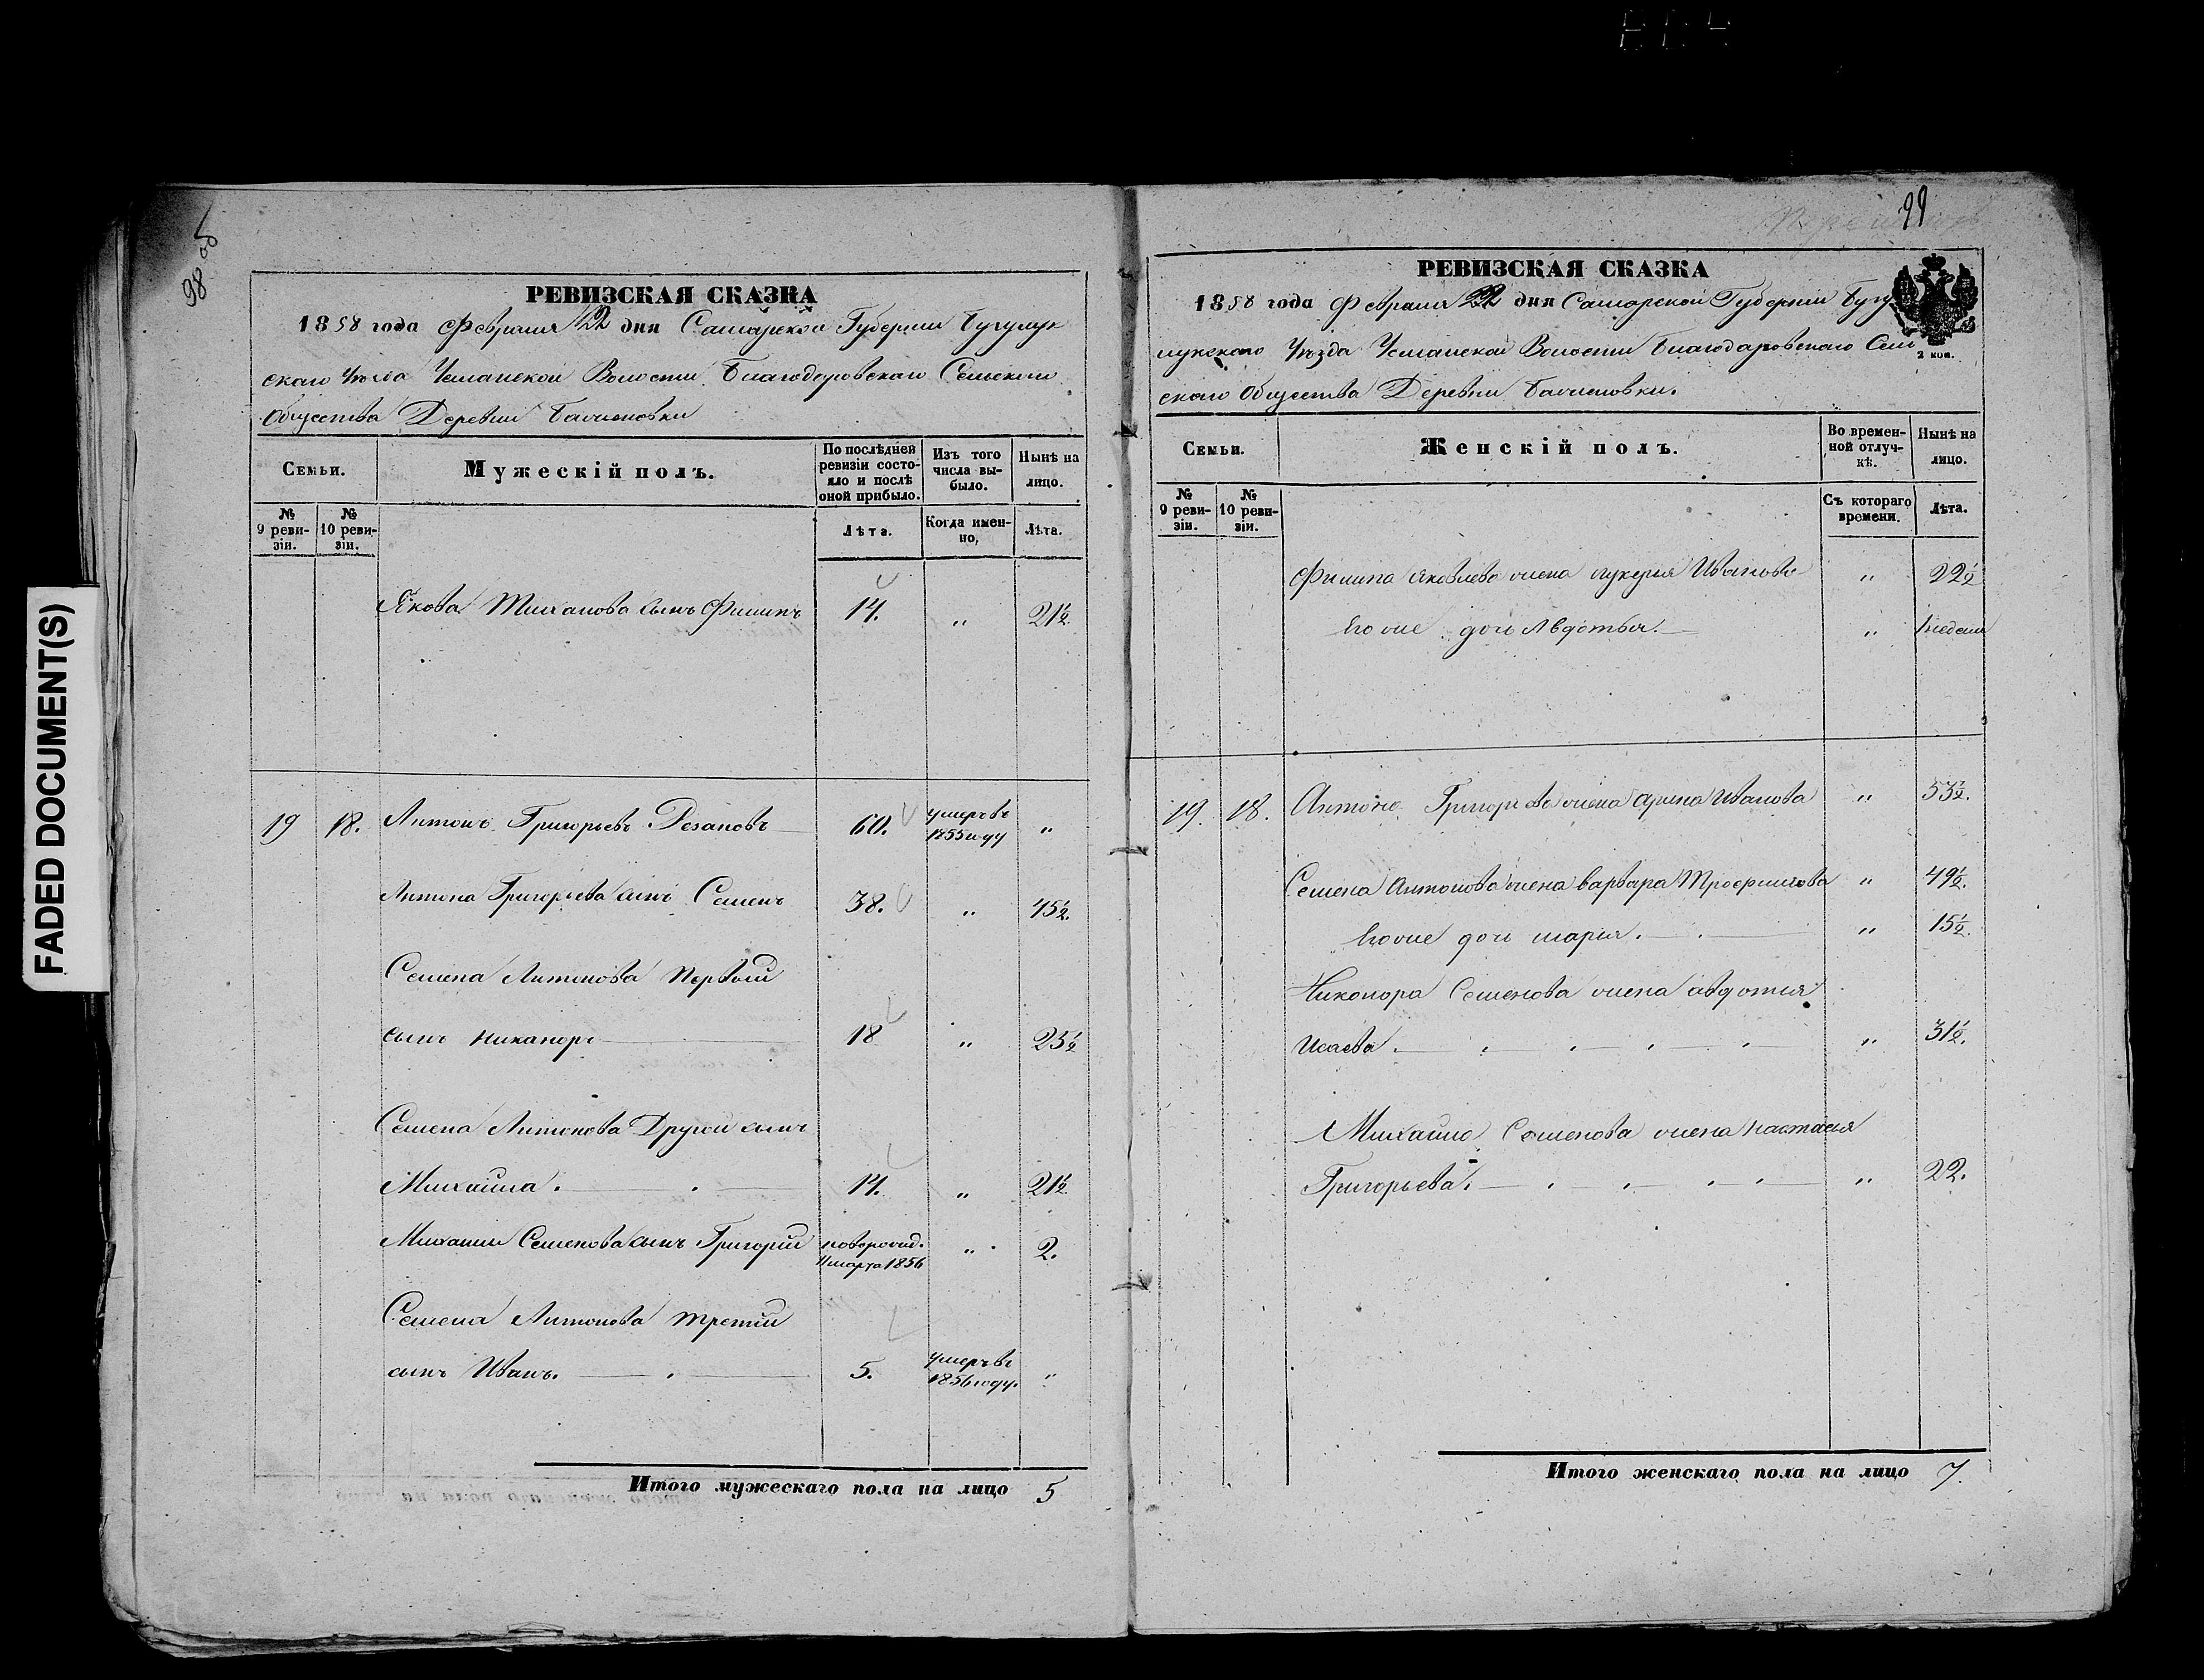 FADED DOCUMENT(S)
98 об
РЕВИЗСКАЯ СКАЗКА
1858 года Февраля 22 дня Самарской Губернии Бугурук
скаго Уѣзда Усманской Волости Благодаровскаго Сельскаго
Общества Деревни
Семьи.
Мужескій полъ.
По послѣдней ревизіи состояло и послѣ оной прибыло.
Изъ того числа выбыло.
Нынѣ на лицо.
№ 9 ревизіи.
№ 10 ревизіи.
Лѣта.
Когда именно,
Лѣта.
Якова сынъ Филипъ 14. " 21½
19 18. Антонъ Григорьевъ Резановъ 60. умеръ въ 1855 году "
Антона Григорьева сынъ Семенъ 38. " 45½.
Семена Антонова Первый
сынъ Никаноръ 18 " 25½
Семена Антонова Другой сынъ
Михайла. 14. " 21½
Михаилы Семенова сынъ Григорий новорожд. 11 марта 1856 " 2.
Семена Антонова третий
сынъ Иванъ. 5. умеръ въ 1856 году. "
Итого мужескаго пола на лицо 5
99
РЕВИЗСКАЯ СКАЗКА
1858 года Февраля 22 дня Самарской Губернии Бугу
2 коп.
Уѣзда Усманской Волости Благодаровскаго Сель
скаго Общества Деревни
Семьи.
Женскій полъ.
Во временной отлучкѣ.
Нынѣ на лицо.
№ 9 ревизіи.
№ 10 ревизіи.
Съ котораго времени.
Лѣта.
Филипа Яковлева жена лукерья Иванова " 22½
Его же дочь Авдотья. " 1 неделя
19. 18. Антона Григорьева жена арина Иванова " 53½.
Семена Антонова жена варвара Трофимова " 49½.
Его же дочь марья. " 15½.
Никонора Семенова жена авдотья
Исаева. " 31½.
Михайло Семенова жена настасья
Григорьева. " 22.
Итого женскаго пола на лицо 7.